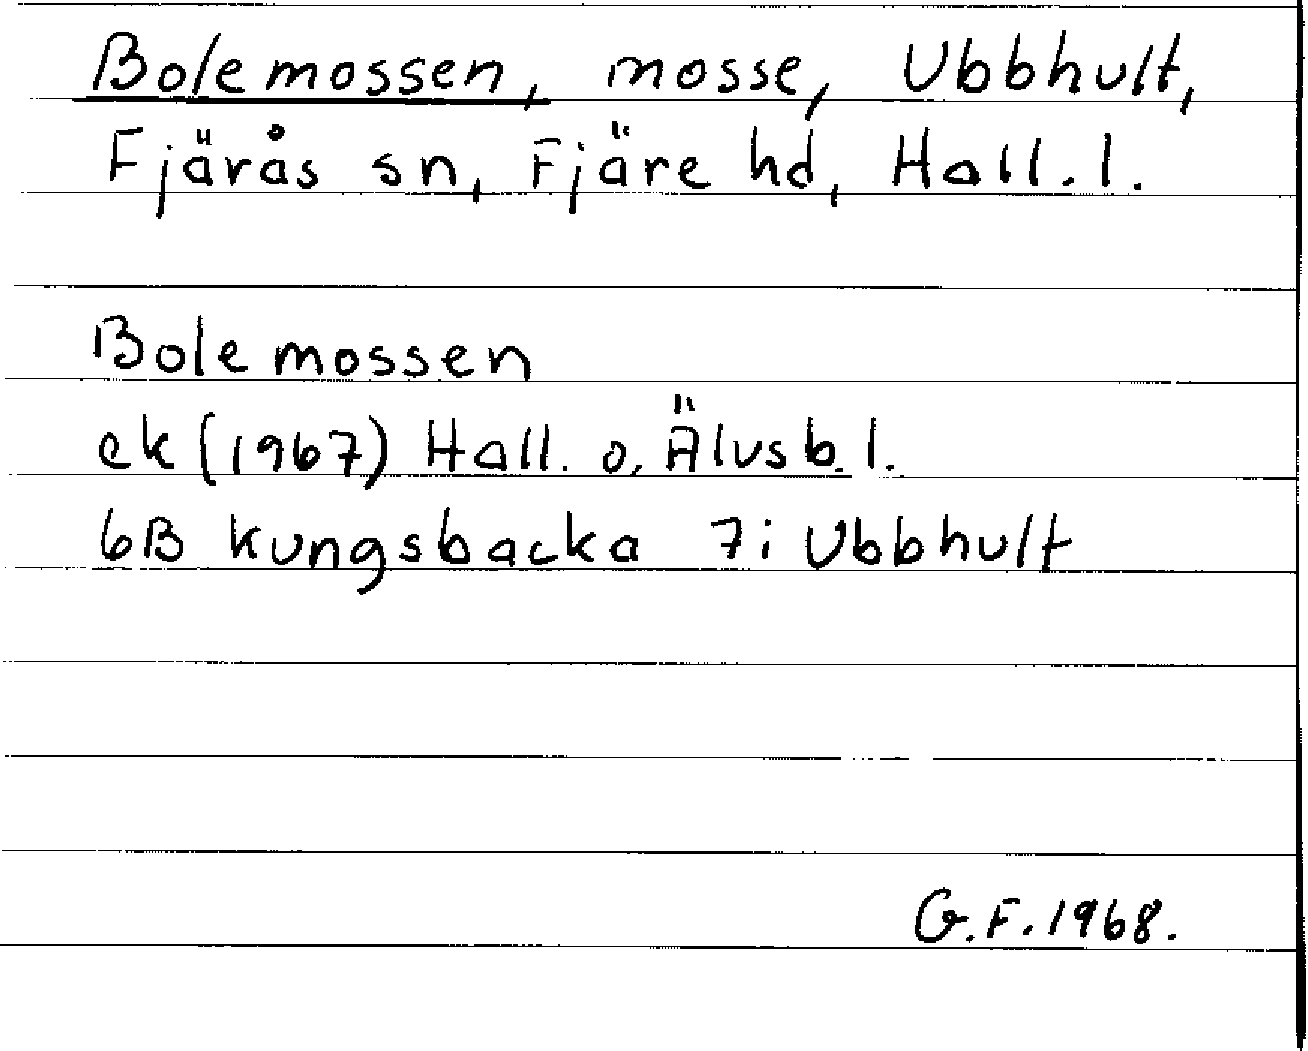 Bolemossen, mosse, Ubbhult,
Fjärås sn, Fjäre hd, Hall. l.
Bolemossen
ek (1967) Hall. o. Älvsb. l.
6B Kungsbacka 7i Ubbhult
G.F. 1968.